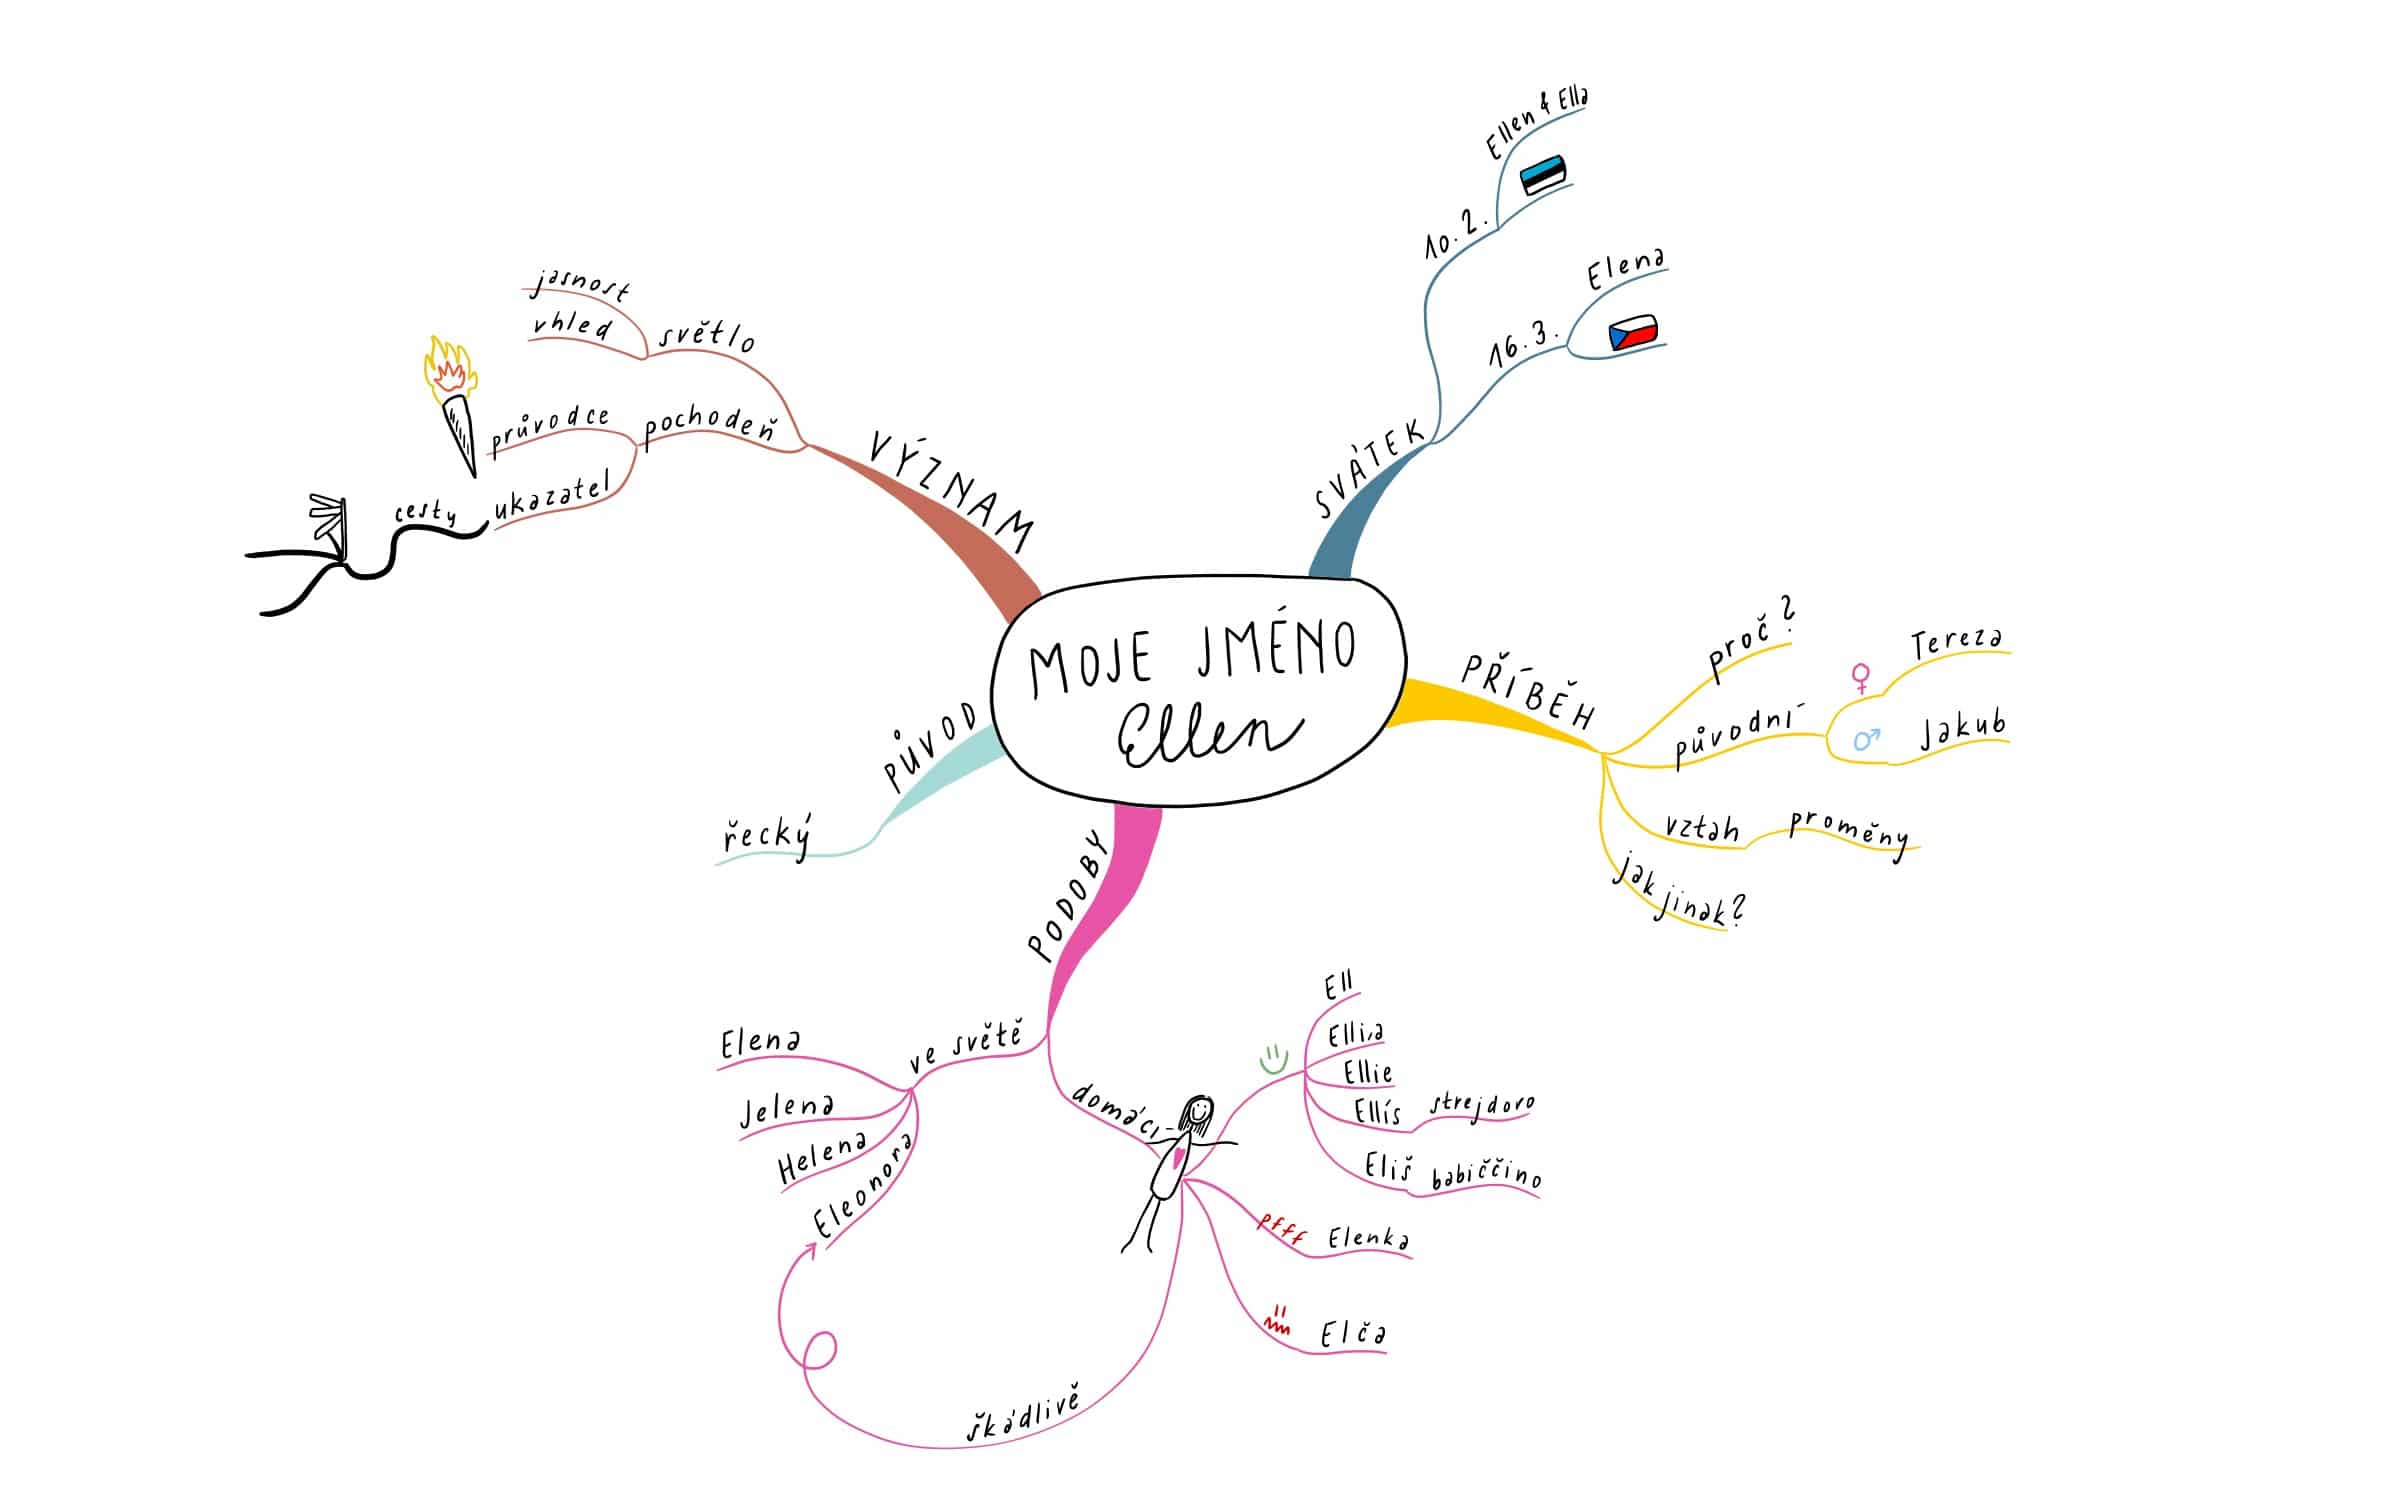 MOJE JMÉNO
Ellen
SVÁTEK
10.2.
Ellen & Ella
16.3.
Elena
PŘÍBĚH
proč?
původní
Tereza
Jakub
vztah
proměny
jak jinak?
PODOBY
domácí
Ell
Ellia
Ellie
Ellís
strejdovo
Eliš
babiččino
pfff
Elenka
Elča
škádlivě
ve světě
Elena
Jelena
Helena
Eleonora
PŮVOD
řecký
VÝZNAM
světlo
jasnost
vhled
pochodeň
průvodce
ukazatel
cesty